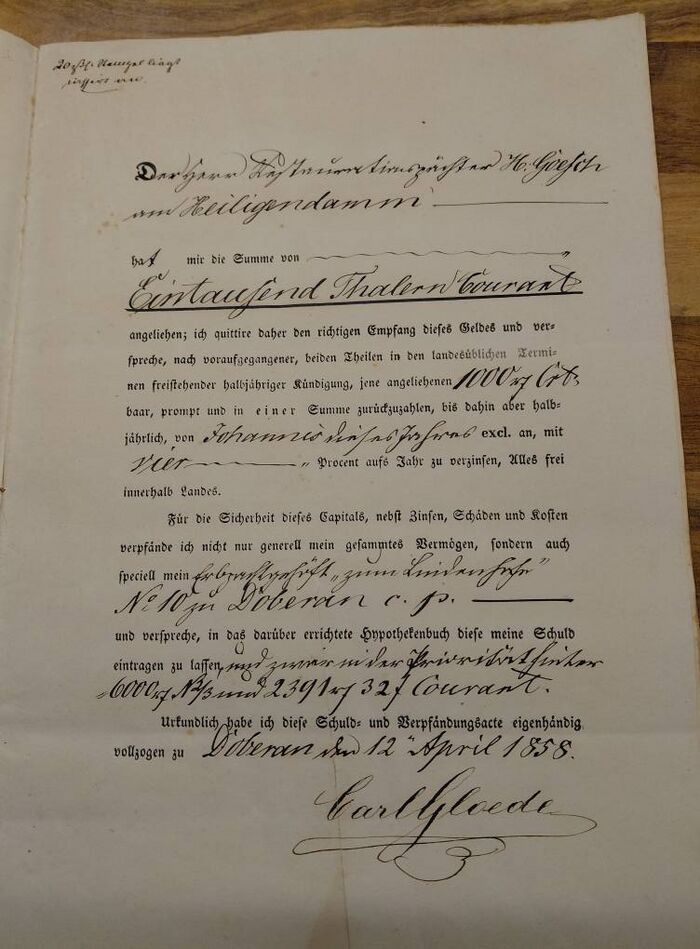 20 ßl. Stempel liegt
cassirt an.
Der Herr Restaurationspächter H. Goesch
am Heiligendamm
hat mir die Summe von
Eintausend Thalern Courant
angeliehen; ich quittire daher den richtigen Empfang dieses Geldes und ver-
spreche, nach voraufgegangener, beiden Theilen in den landesüblichen Termi-
nen freistehender halbjähriger Kündigung, jene angeliehenen 1000 rₓ Crt.
baar, prompt und in einer Summe zurückzuzahlen, bis dahin aber halb-
jährlich, von Johannis dieses Jahres excl. an, mit
vier Procent aufs Jahr zu verzinsen, Alles frei
innerhalb Landes.
Für die Sicherheit dieses Capitals, nebst Zinsen, Schäden und Kosten
verpfände ich nicht nur generell mein gesammtes Vermögen, sondern auch
speciell mein Erbpachtgehöft „zum Lindenhofe"
No 10 zu Doberan c. p.
und verspreche, in das darüber errichtete Hypothekenbuch diese meine Schuld
eintragen zu lassen, und zwar in der Priorität hinter
6000 rₓ N 2/3 und 2391 rₓ 32 ſ Courant.
Urkundlich habe ich diese Schuld- und Verpfändungsacte eigenhändig
vollzogen zu Doberan den 12 April 1858.
Carl Gloede